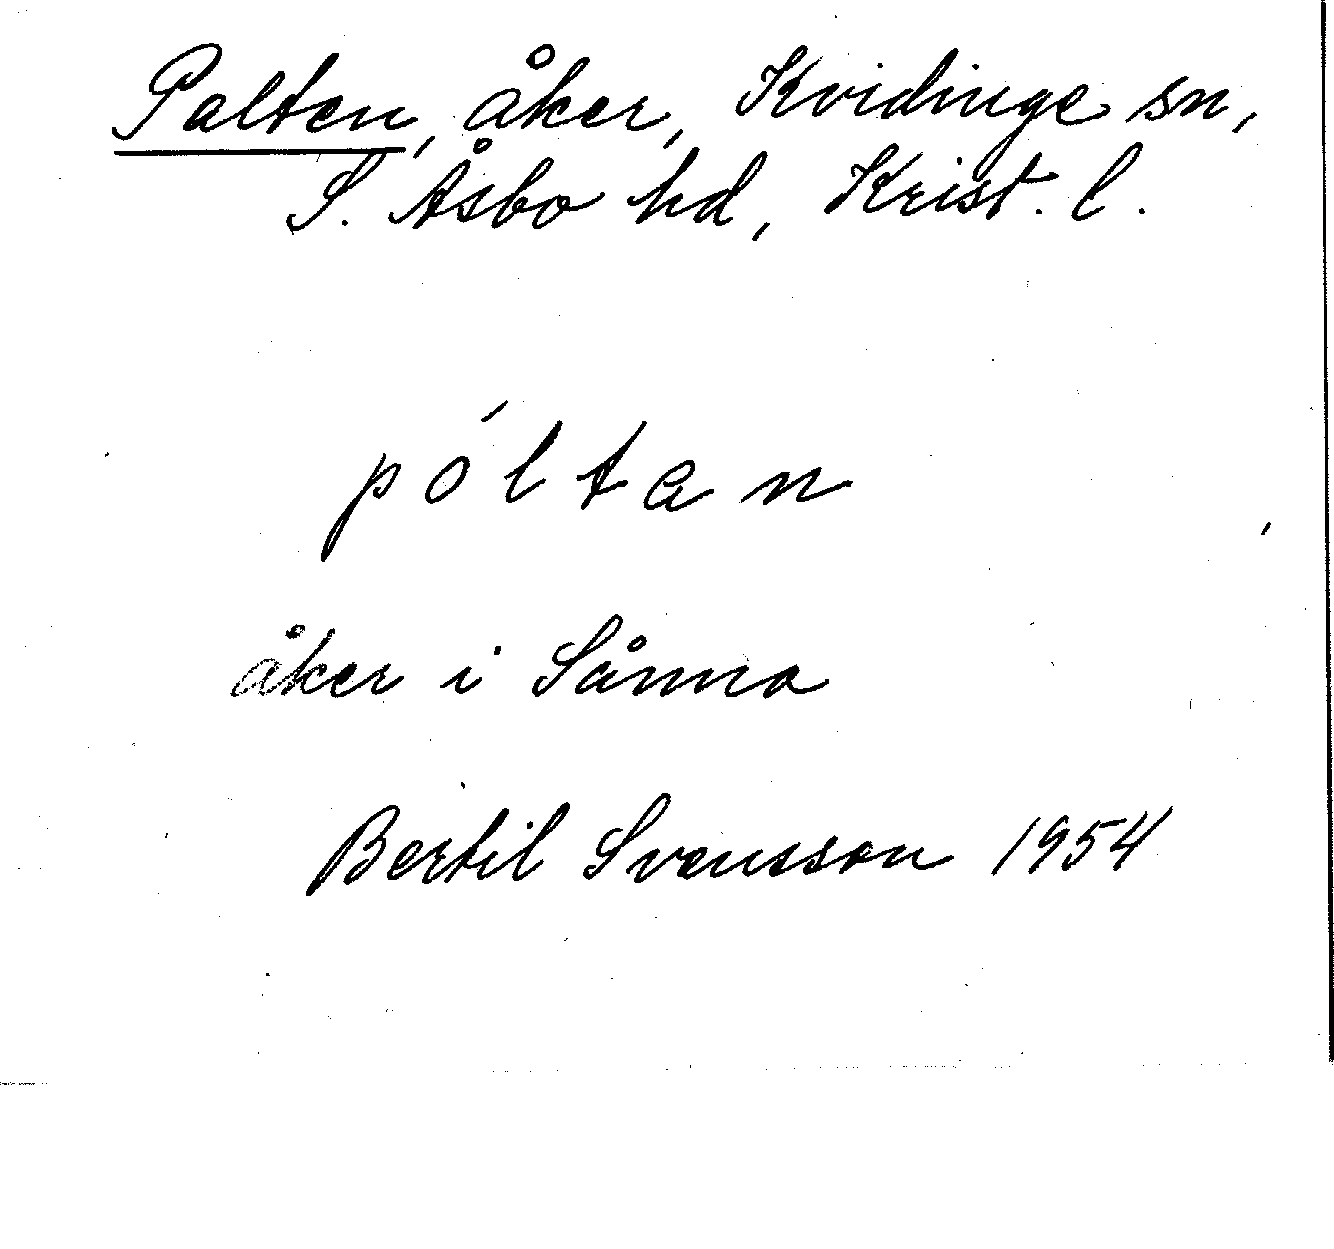 Palten, åker, Kvidinge sn,
S. Åsbo hd, Krist. l.
póltan
åker i Sånna
Bertil Svensson 1954